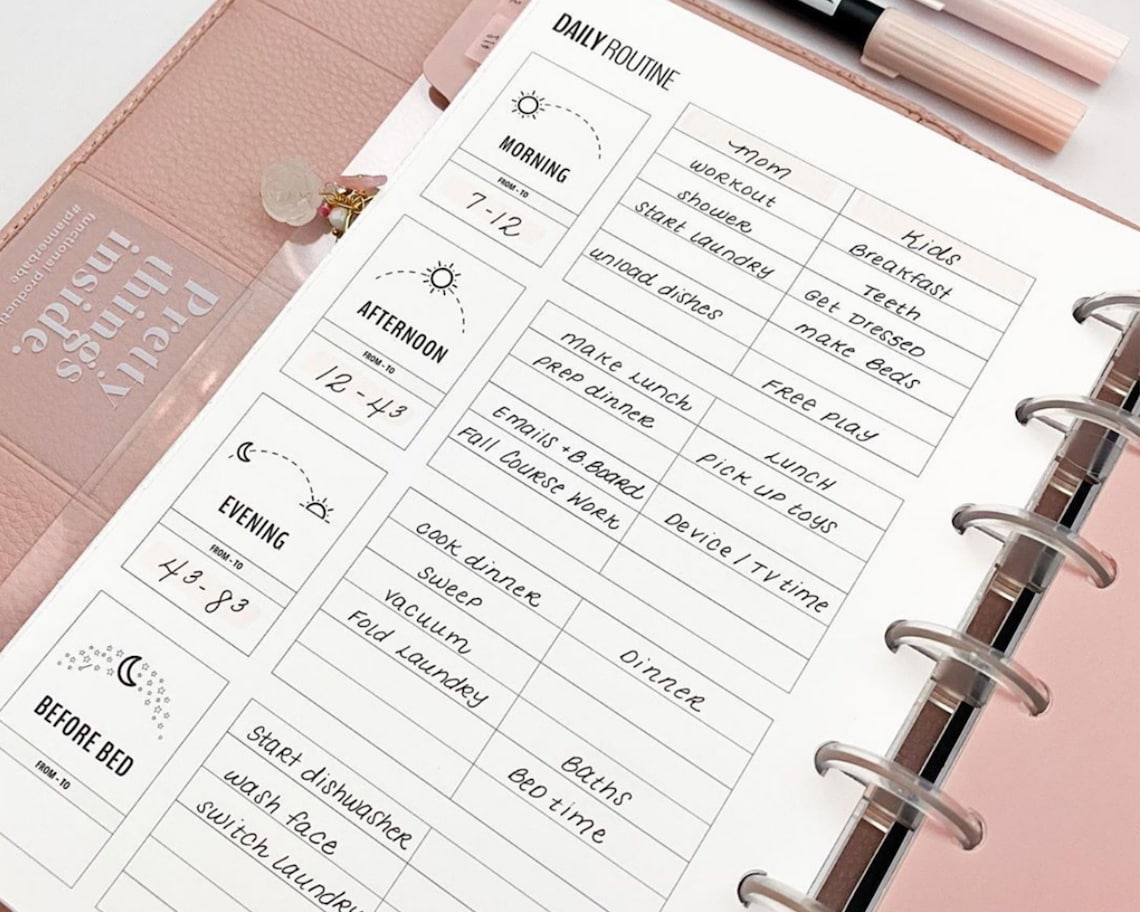 DAILY ROUTINE
MORNING
FROM - TO
7-12
mom
Kids
workout
Breakfast
shower
Teeth
start laundry
Get Dressed
make Beds
unload dishes
Free Play
AFTERNOON
FROM - TO
12 - 4³
make lunch
Lunch
prep dinner
pick up toys
Emails + B.Board
Device / TV time
Fall Course Work
EVENING
FROM - TO
4³- 8³
cook dinner
Dinner
sweep
vacuum
Baths
Fold Laundry
Bed time
BEFORE BED
FROM - TO
Start dishwasher
wash face
switch laundry
Pretty
things
inside.
#plannerbabe